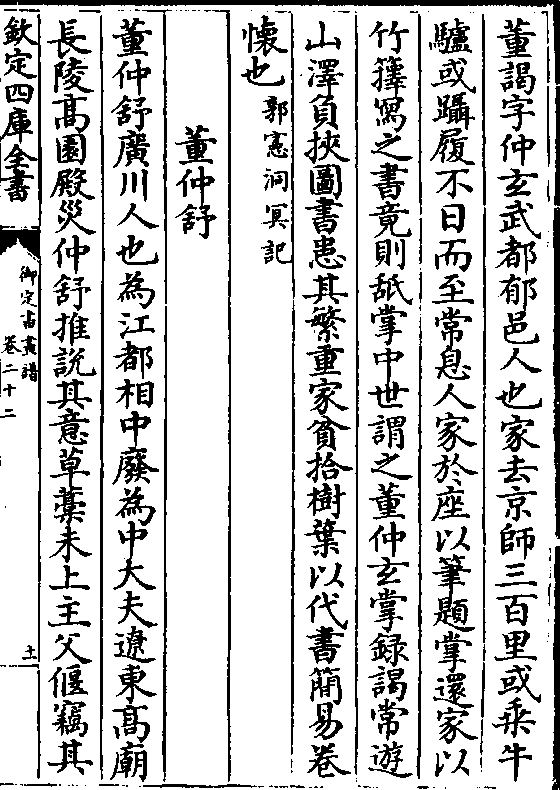 董謁字仲玄武都郁邑人也家去京師三百里或乘牛
驢或躡履不日而至常息人家於座以筆題掌還家以
竹籜寫之書竟則舐掌中世謂之董仲玄掌録謁常遊
山澤負挾圖書患其繁重家貧拾樹葉以代書簡易卷
懷也郭憲洞冥記
董仲舒
董仲舒廣川人也為江都相中廢為中大夫遼東髙廟
長陵髙園殿災仲舒推說其意草藳未上主父偃竊其
欽定四庫全書
御定書畫譜
卷二十二
十一